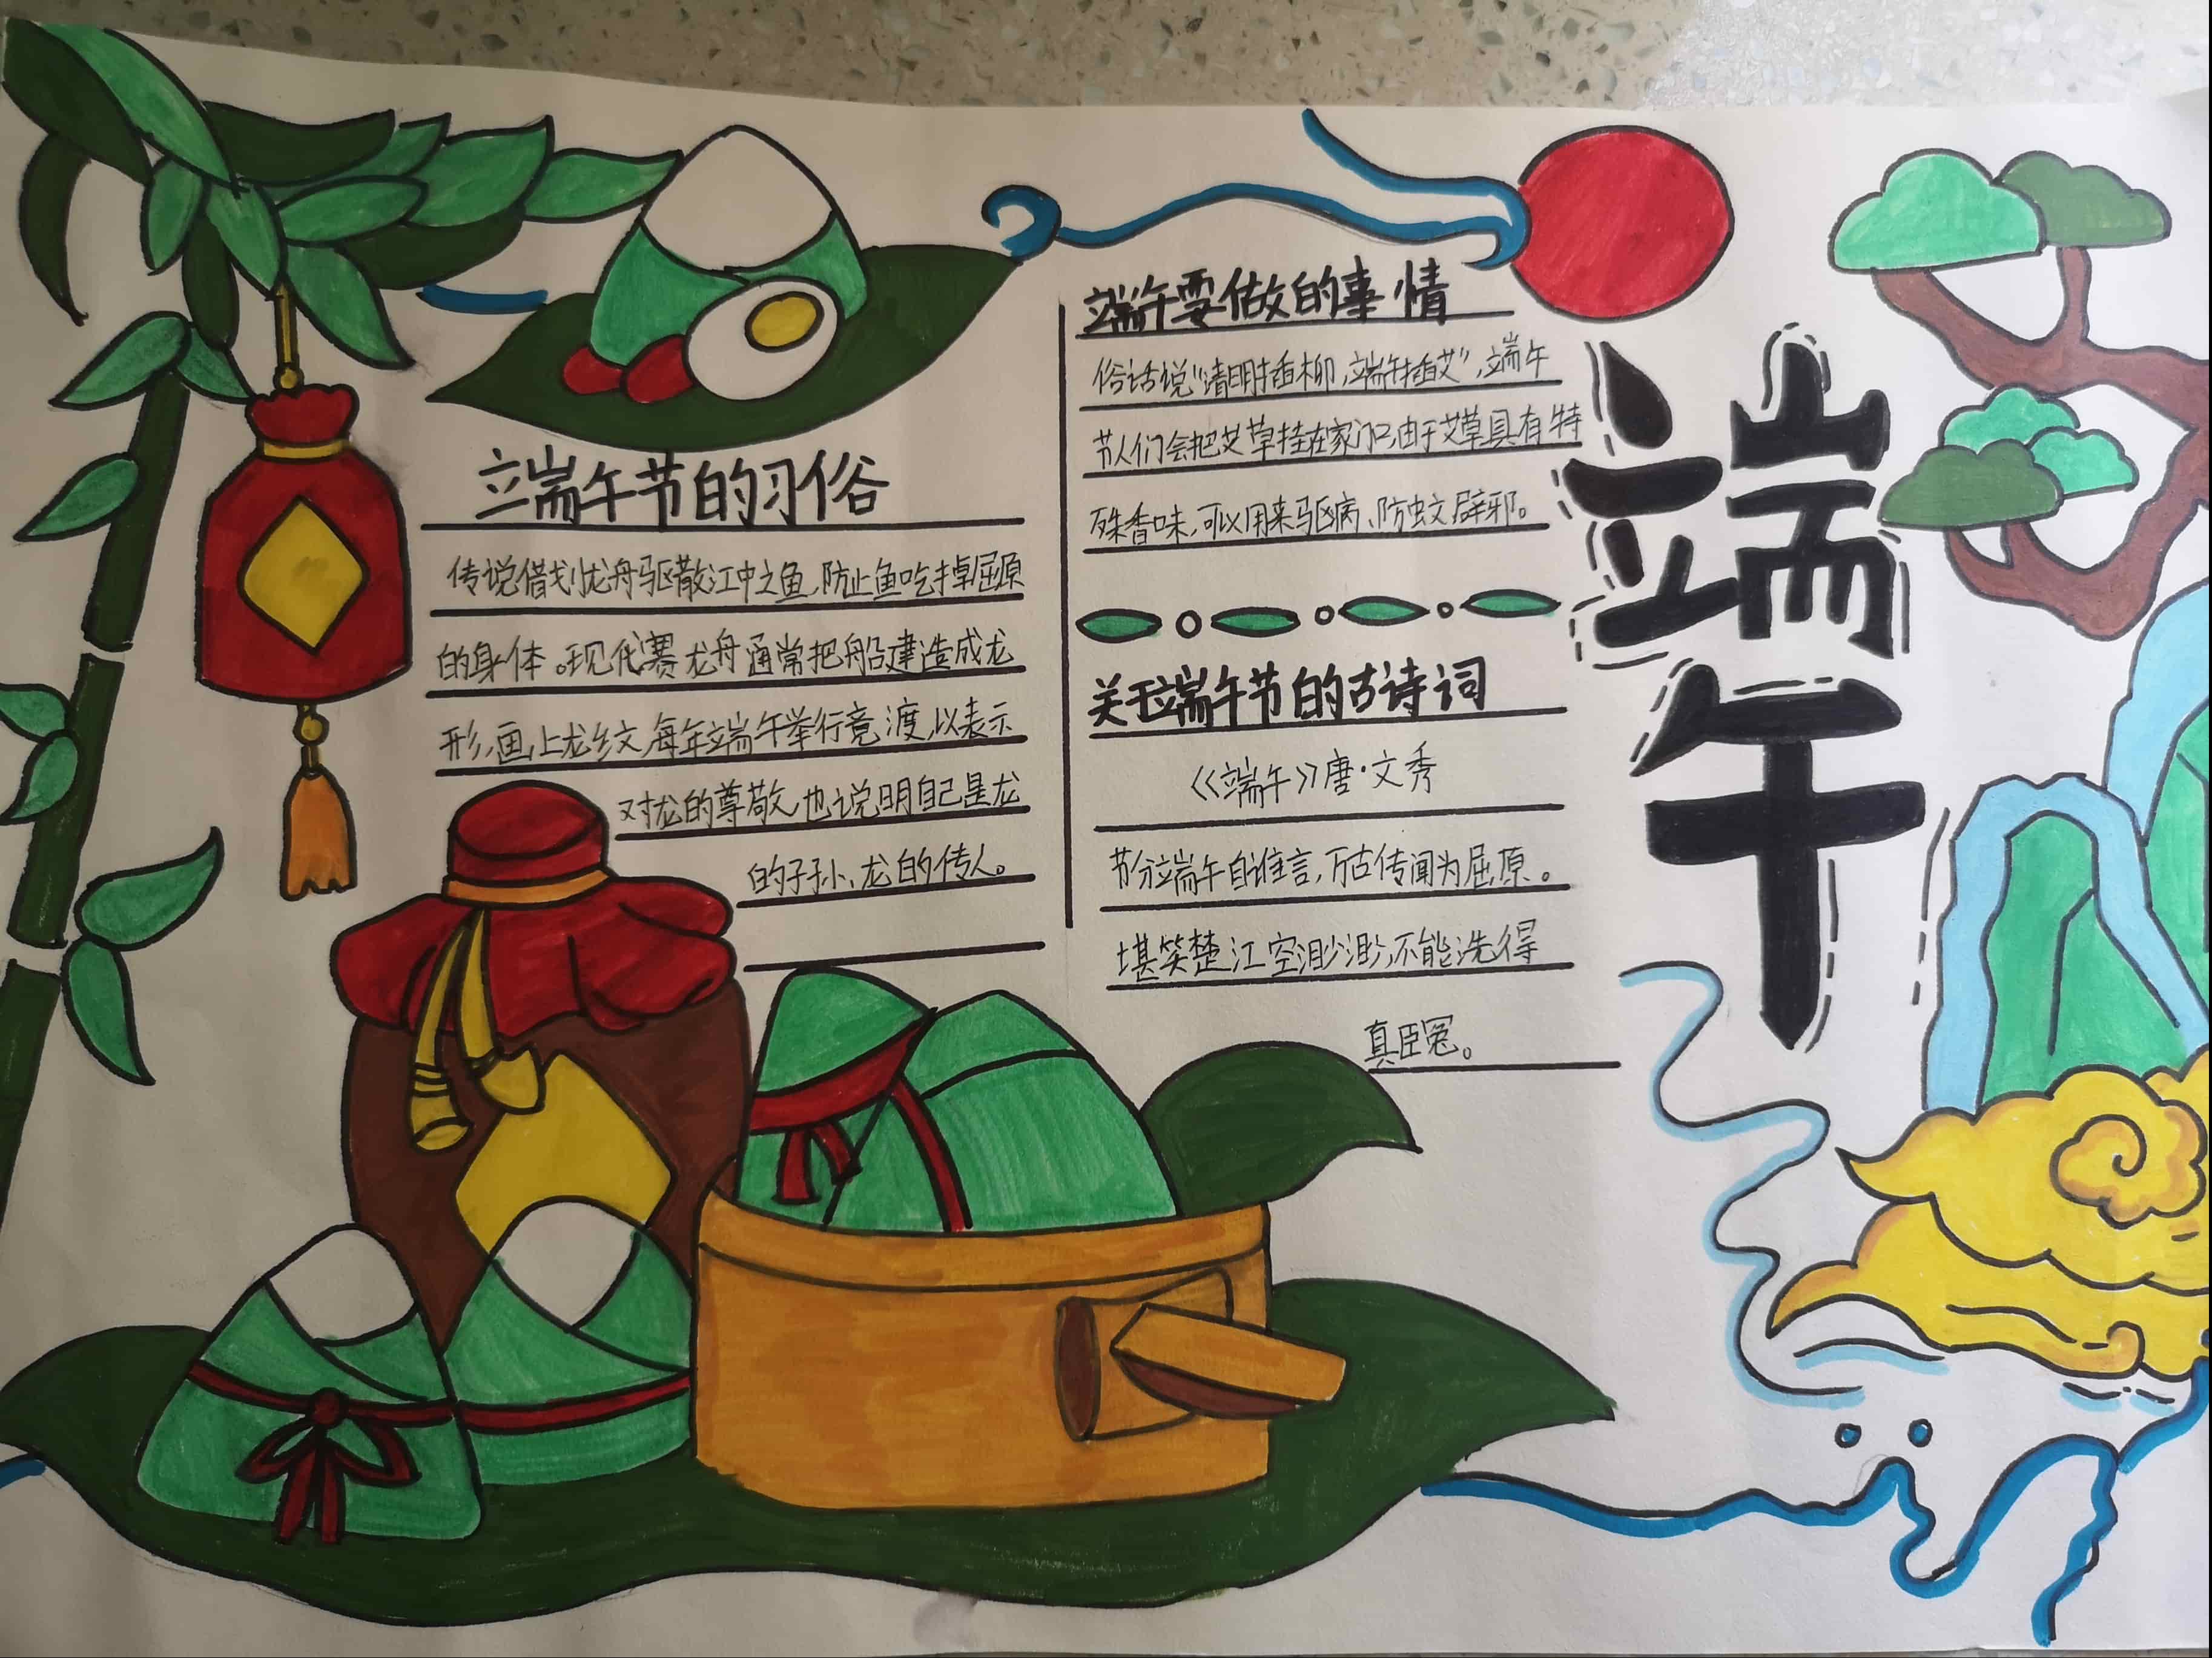 端午节的习俗
传说借划龙舟驱散江中之鱼,防止鱼吃掉屈原
的身体。现代赛龙舟通常把船建造成龙
形,画上龙纹,每年端午举行竞渡,以表示
对龙的尊敬,也说明自己是龙
的子孙、龙的传人。
端午要做的事情
俗话说“清明插柳,端午插艾”,端午
节人们会把艾草挂在家门口,由于艾草具有特
殊香味,可以用来驱病、防蚊、辟邪。
关于端午节的古诗词
《端午》唐·文秀
节分端午自谁言,万古传闻为屈原。
堪笑楚江空渺渺,不能洗得
真臣冤。
端午